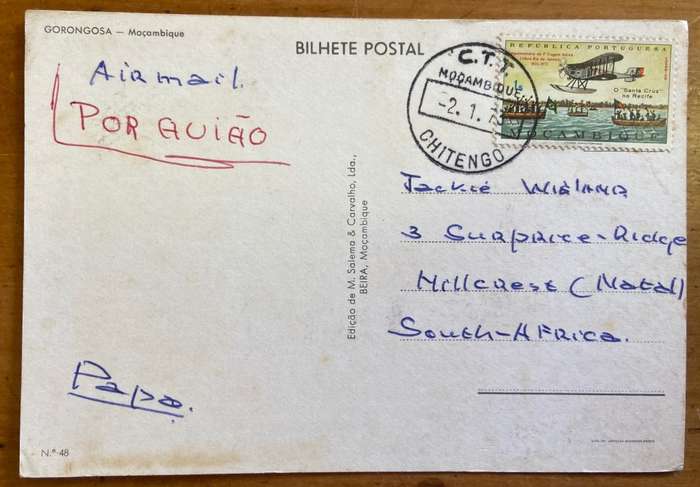 GORONGOSA — Moçambique
BILHETE POSTAL
Airmail.
POR AVIÃO
C.T.T.
MOÇAMBIQUE
-2.1.7
CHITENGO
REPÚBLICA PORTUGUESA
O "Santa Cruz"
no Recife
MOÇAMBIQUE
Jackie
3 Surprice-Ridge
Hillcrest (Natal)
South-Africa.
Edição de M. Salema & Carvalho, Lda.,
BEIRA, Moçambique
Papa.
N.º 48